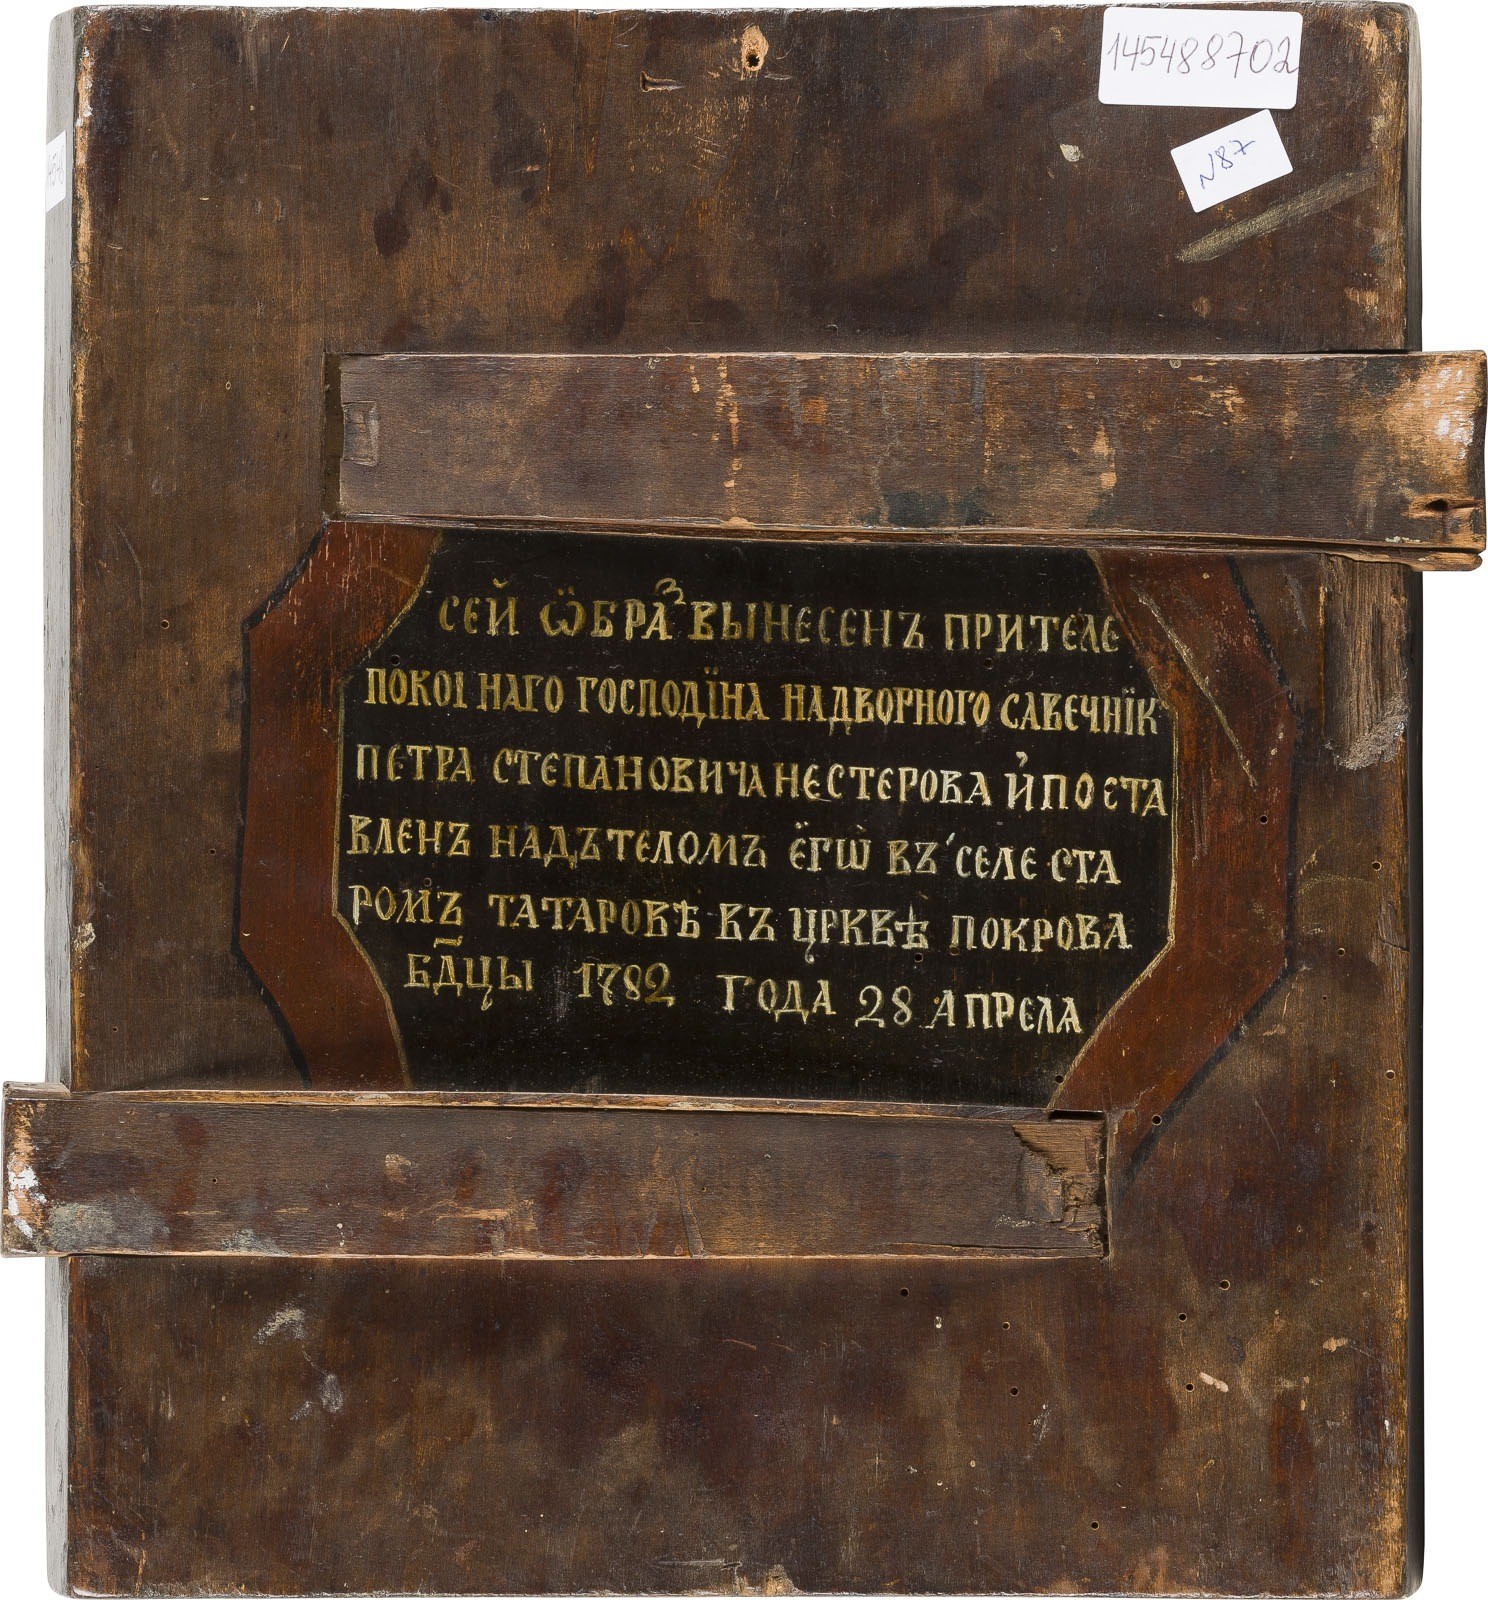 145488702
N87
СЕЙ ѾБРАᲥ ВЫНЕСЕНЪ ПРИТЕЛЕ
ПОКОІ НАГО ГОСПОДЇНА НАДВОРНОГО САВЕЧНЇК
ПЕТРА СТЕПАНОВИЧА НЕСТЕРОВА И҆ ПОСТА
ВЛЕНЪ НАДЪ ТЕЛОМЪ Е҆ГѠ̀ ВЪ СЕЛЕ СТА
РОМЪ ТАТАРОВѢ ВЪ ЦРКВѢ ПОКРОВА
БДЦЫ 1782 ГОДА 28 АПРЕЛѦ